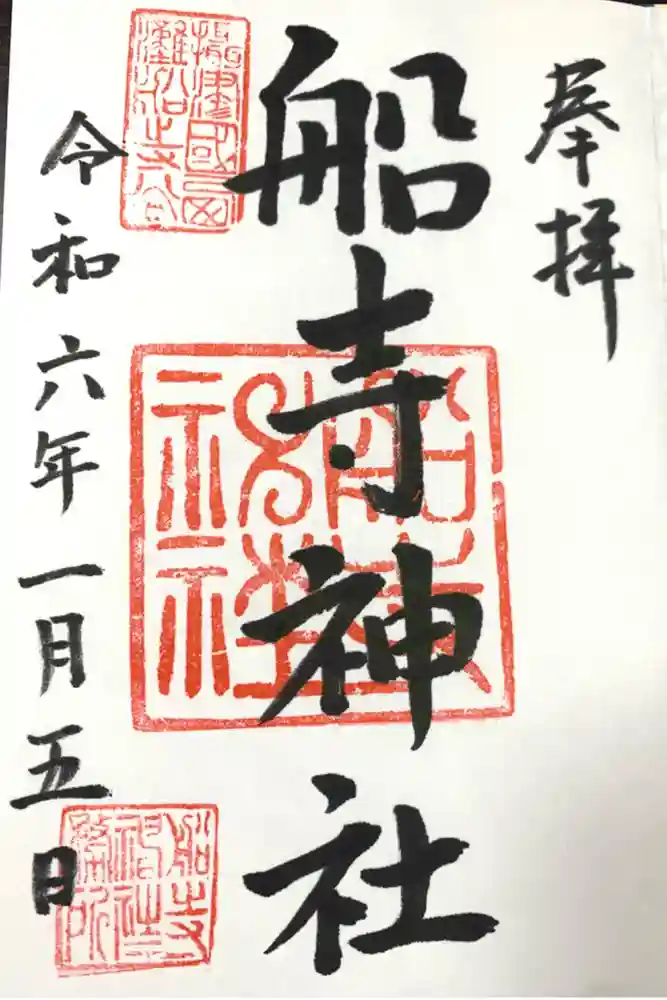 奉拝
船寺神社
令和六年一月五日
船寺神社
船寺神社